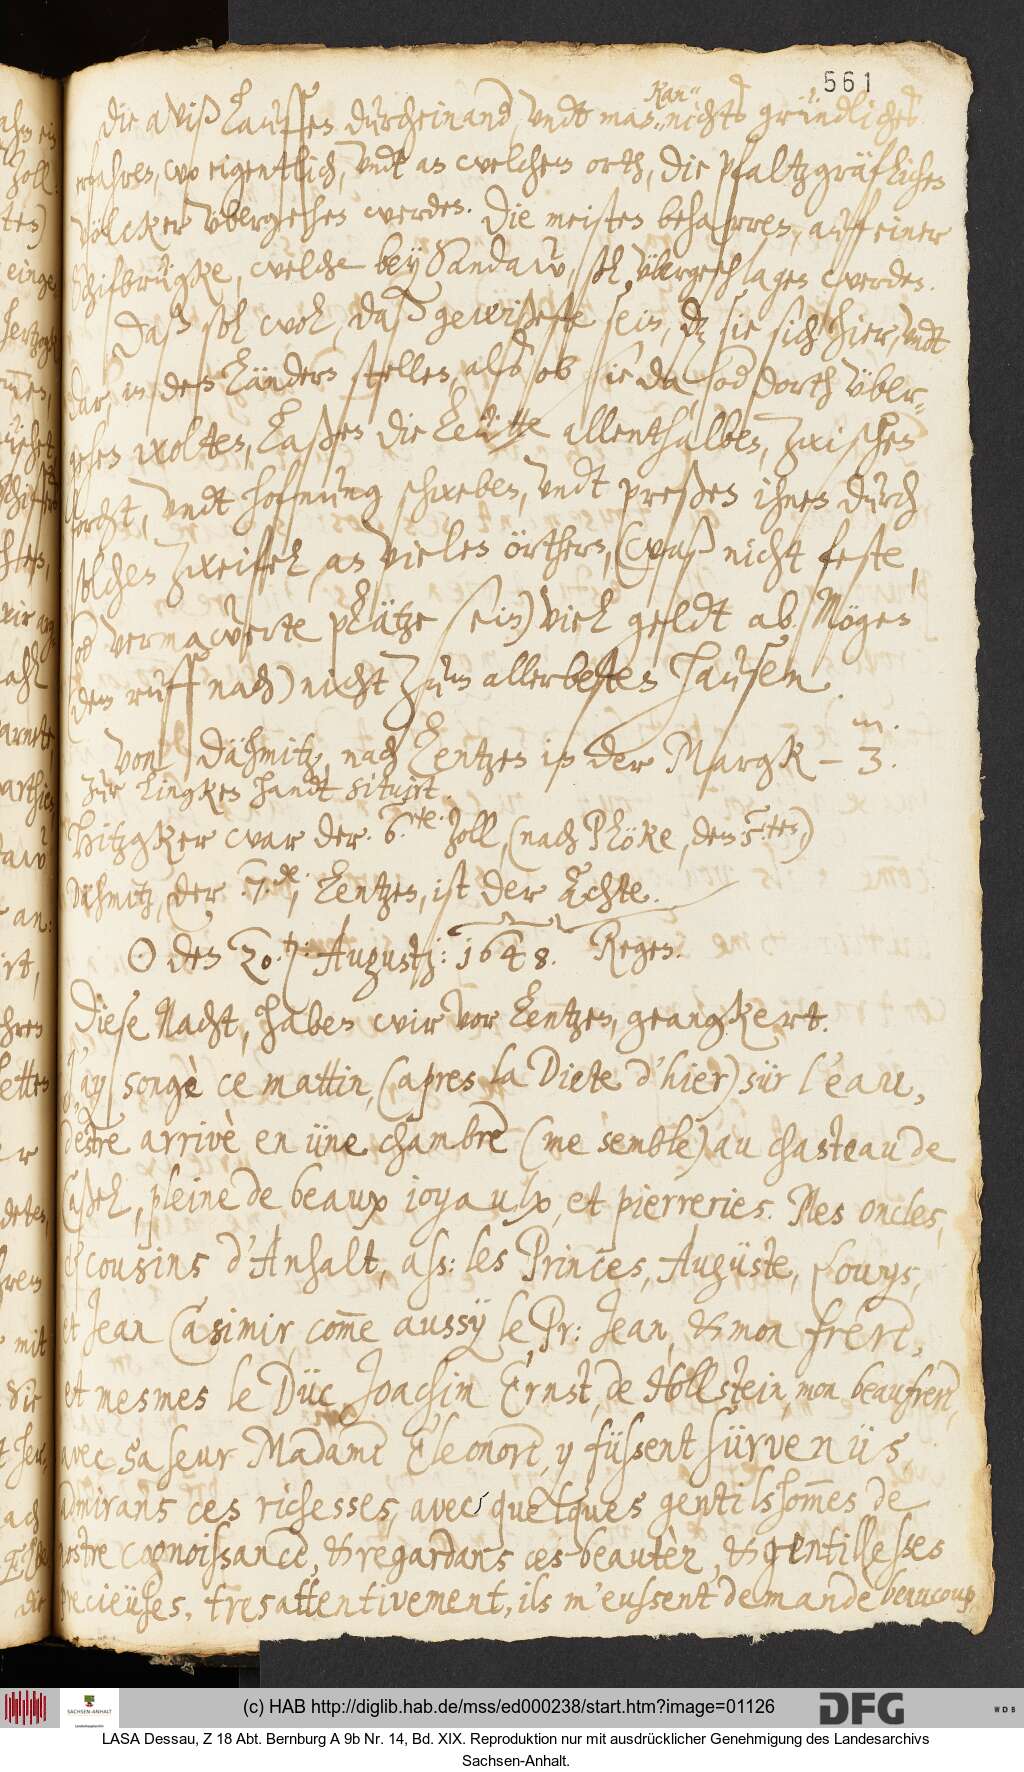 561
Die aviß lauffen durcheinand, undt man kan nichts gründliches
erfahren, wo eigentlich, undt an welchem orth, die Pfaltzgräfliches
völcker übergehen werden. Die meisten beharren, auff einer
Schifbrügke, welche bey Sandaw, sol übergeschlagen werden.
Daß sol wol, daß gewißeste sein, dz sie sich hier, undt
dar, in den Ländern stellen, alß ob sie da od dorth über-
gehen wolten, laßen die Leütte allenthalben, zwischen
forcht, undt hofnung schweben, undt preßen ihnen durch
solchen zweiffel, an vielen örthern, (waß nicht feste,
od vermawerte plätze sein) viel geldt ab. Mögen
(dem ruff nach) nicht zum allerbesten hausen.
von Dähmitz, nach Lentzen in der Margk – 3. m.
zur lingken handt situirt.
Hitzgker war der 6.te Zoll, (nach Plöke, den 5.ten,)
Dähmitz, der 7.de, Lentzen, ist der Achte.
☉ den 20.ten Augustj: 1648. Regen.
Diese Nacht, haben wir vor Lentzen, geangkert.
J'ay songè ce mattin, (apres la Diete d'hier) sür l'eau,
d'estre arrivè en üne chambre (me semble) au chasteau de
Caßel, pleine de beaux ioyaulx, et pierreries. Mes oncles,
et cousins d'Anhalt, ass: les Princes, Auguste, Louys,
et Jean Casimir, com̄e aussÿ le Pr: Jean, & mon frere,
et mesmes le Düc Joachim Ernst, de Hollstein, mon beaufrere,
avec sa seur Madame Eleonore, y füssent sürvenüs,
admirans ces richesses, avec quelques gentilshom̄es de
nostre cognoissance, & regardans ces beautèz, & gentillesses
precieüses, tresattentivement, ils m'eussent demande beaucoup
(c) HAB http://diglib.hab.de/mss/ed000238/start.htm?image=01126
SACHSEN-ANHALT
DFG
WDB
LASA Dessau, Z 18 Abt. Bernburg A 9b Nr. 14, Bd. XIX. Reproduktion nur mit ausdrücklicher Genehmigung des Landesarchivs
Sachsen-Anhalt.